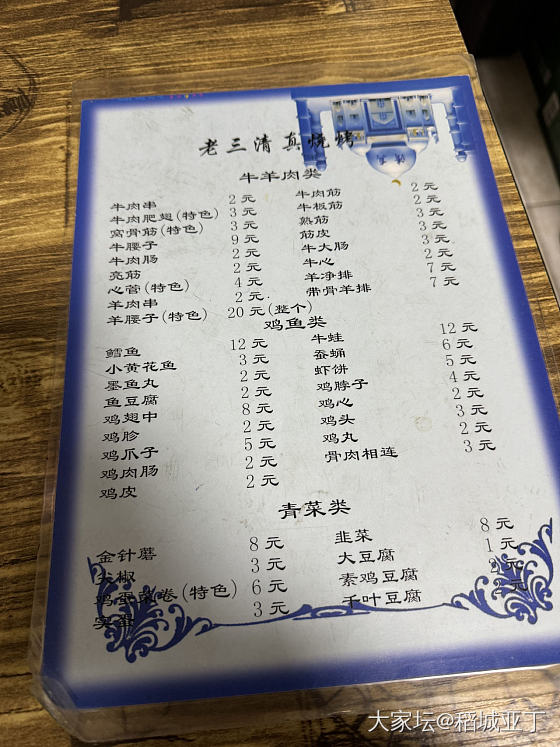 老三清真烧烤
牛羊肉类
牛肉串 2元 牛肉筋 2元
牛肉肥翅(特色) 3元 牛板筋 2元
窝骨筋(特色) 3元 熟筋 3元
牛腰子 9元 筋皮 3元
牛肉肠 2元 牛大肠 3元
亮筋 2元 牛心 2元
心管(特色) 4元 羊净排 7元
羊肉串 2元 带骨羊排 7元
羊腰子(特色) 20元(整个)
鸡鱼类
鳕鱼 12元 牛蛙 12元
小黄花鱼 3元 蚕蛹 6元
墨鱼丸 2元 虾饼 5元
鱼豆腐 2元 鸡脖子 4元
鸡翅中 8元 鸡心 2元
鸡胗 2元 鸡头 3元
鸡爪子 5元 鸡丸 2元
鸡肉肠 2元 骨肉相连 3元
鸡皮 2元
青菜类
金针蘑 8元 韭菜 8元
尖椒 3元 大豆腐 1元
鸡蛋 卷(特色) 6元 素鸡豆腐 2元
实蛋 3元 千叶豆腐 2元
大家坛@稻城亚丁